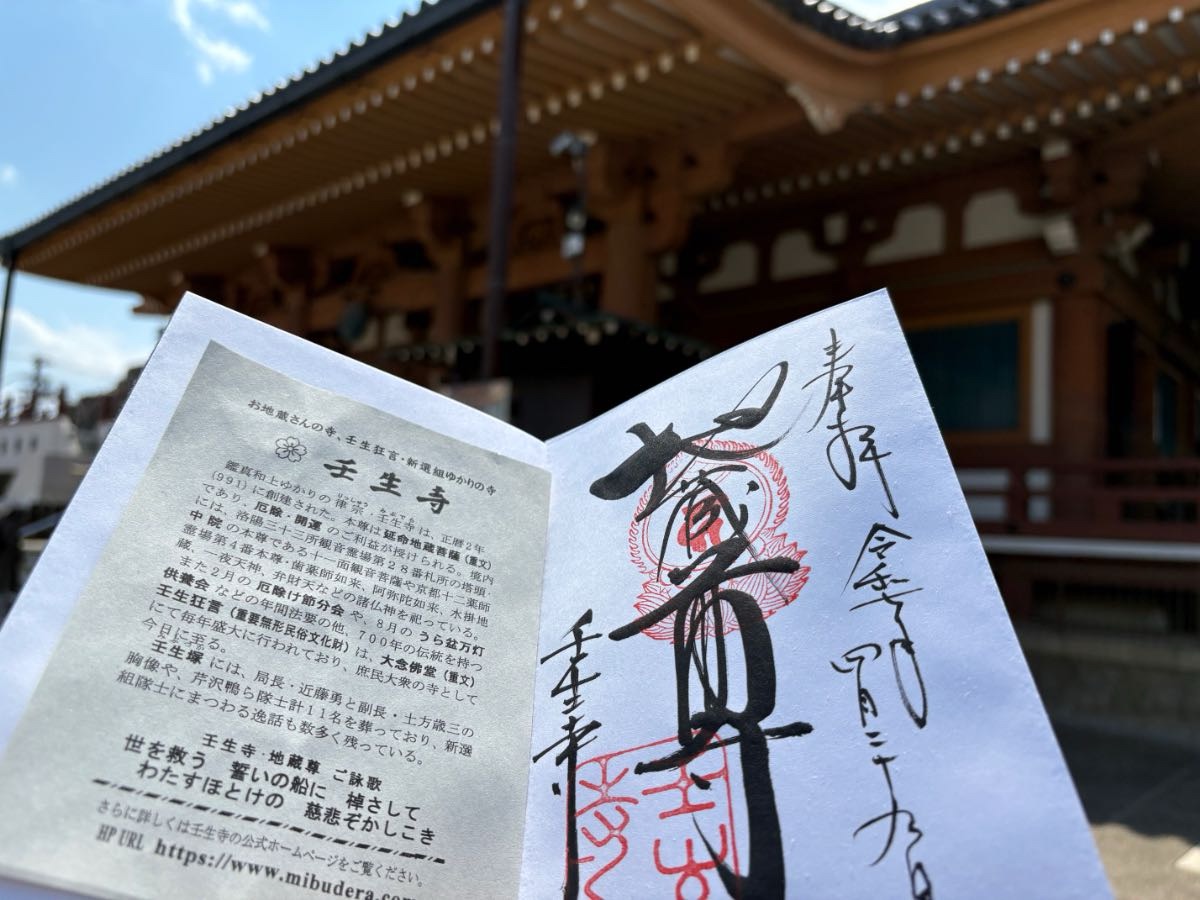 お地蔵さんの寺、壬生狂言・新選組ゆかりの寺
壬生寺
鑑真和上ゆかりの律宗 壬生寺は、正暦2年
りっしゅう みぶでら
(991)に創建された。本尊は延命地蔵菩薩(重文)
であり、厄除・開運のご利益が授けられる。境内
には、洛陽三十三所観音霊場第28番札所の塔頭・
中院の本尊である十一面観音菩薩や京都十二薬師
霊場第4番本尊・歯薬師如来、阿弥陀如来、水掛地
蔵、一夜天神、弁財天などの諸仏神を祀っている。
また2月の厄除け節分会や、8月のうら盆万灯
供養会などの年間法要の他、700年の伝統を持つ
壬生狂言(重要無形民俗文化財)は、大念佛堂(重文)
にて毎年盛大に行われており、庶民大衆の寺として
今日に至る。
壬生塚には、局長・近藤勇と副長・土方歳三の
胸像や、芹沢鴨ら隊士計11名を葬っており、新選
組隊士にまつわる逸話も数多く残っている。
壬生寺・地蔵尊 ご詠歌
世を救う 誓いの船に 棹さして
わたすほとけの 慈悲ぞかしこき
さらに詳しくは壬生寺の公式ホームページをご覧ください。
HP URL https://www.mibudera.com
奉拝
令和
四月二十九日
地蔵尊
壬生寺